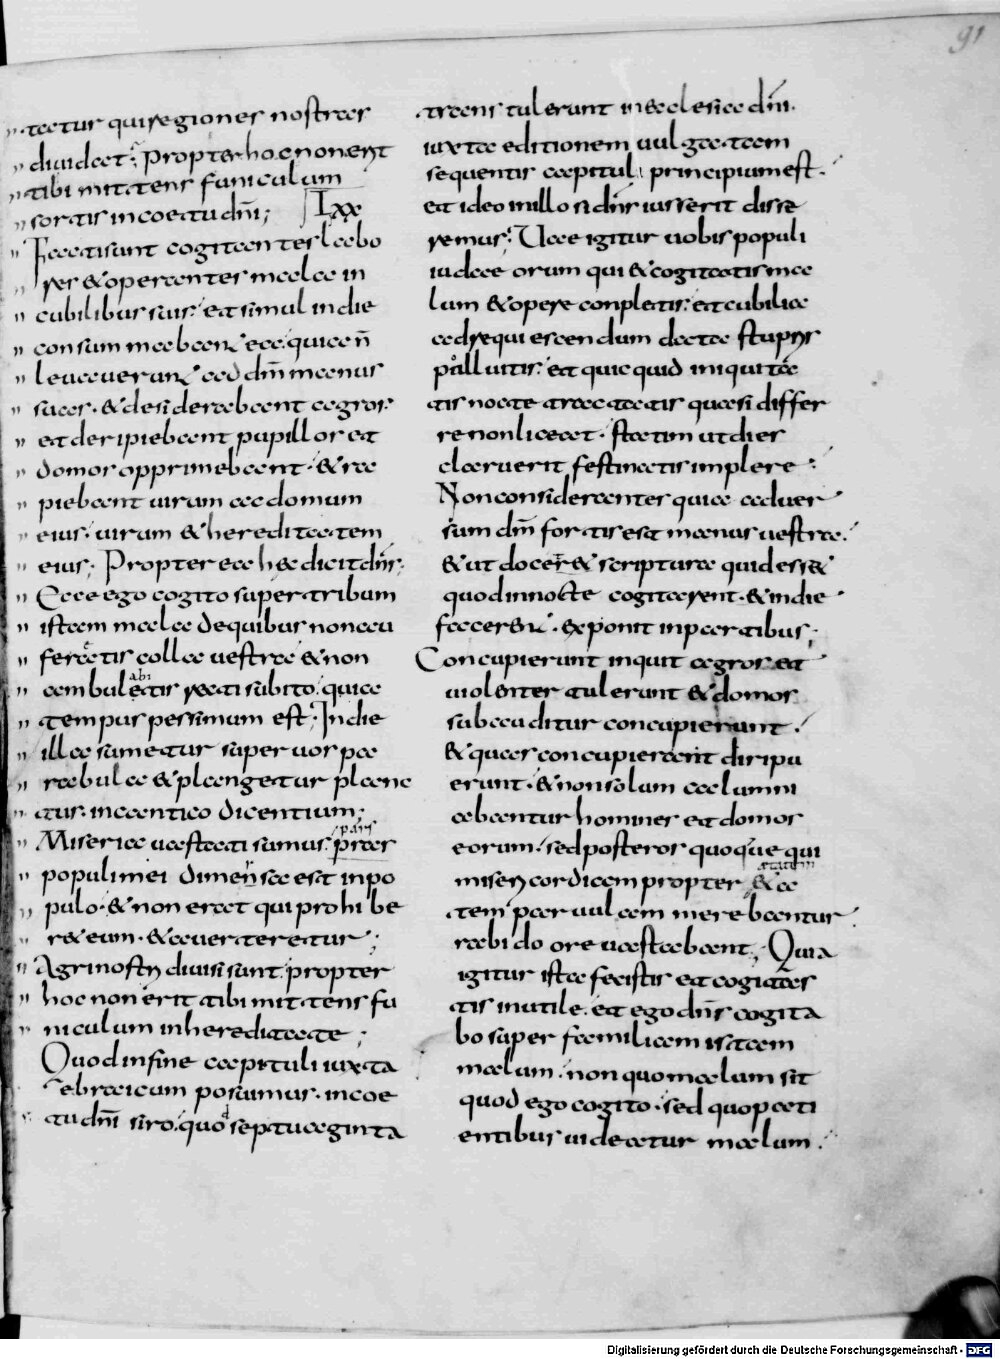 91
tatur qui regiones nostras
diuidat; propter hoc non erit
tibi mittens funiculum
sortis in coetu dñi; LXX
Facti sunt cogitantes labo
res & operantes mala in
cubilibus suis; et simul in die
consummabant ea; quia ñ
leuauerunt ad dm̄ manus
suas. & desiderabant agros;
et deripiebant pupillos et
domos opprimebant. & ra
piebant uirum ac domum
eius; uirum & hereditatem
eius; Propterea haec dicit dñs;
Ecce ego cogito super tribum
istam mala de quibus non au
feretis colla uestra & non
abi
ambuletis recti subito; quia
tempus pessimum est; In die
illa sumetur super uos pa
rabula & plangetur planc
tus; in cantico dicentium;
Miseria uastati sumus; pars
populi mei dimensa est in po
pulo. & non erat qui prohibe
r& eum. & auerteretur;
Agri nostri diuisi sunt; propter
hoc non erit tibi mittens fu
niculum in hereditate;
Quod in fine capituli iuxta
ebraicum posuimus. in coe
tu dñi siro; quod septuaginta
trans tulerunt in ecclesia dñi.
iuxta editionem uulgatam
sequentis capituli principium est.
et ideo in illo si dñs iusserit disse
remus; Uae igitur uobis populi
iudaeorum qui & cogitatis ma
lum & opere conpletis; et cubilia
ad requiescendum data stupris
polluitis; et quicquid iniquita
tis nocte tractatis quasi differ
re non liceat. statim ut dies
claruerit festinatis implere;
Non considerantes quia aduer
sum dm̄ fortis est manus uestra;
& ut docer& scriptura quid ess&
quod in nocte cogitarent. & in die
facerent. exponit in partibus;
Concupierunt inquit agros et
uiolenter tulerunt & domos
subauditur concupierunt;
& quas concupierant diripu
erunt. & non solum calumni
abantur homines et domos
eorum; sed posteros quoque qui
misericordiam propter aetatem
tem paruulam merebantur;
rabido ore uastabant; Quia
igitur ista fecistis et cogitas
tis inutile. et ego dñs cogita
bo super familiam istam
malum; non quo malum sit
quod ego cogito. sed quo pati
entibus uideatur malum;
Digitalisierung gefördert durch die Deutsche Forschungsgemeinschaft - DFG